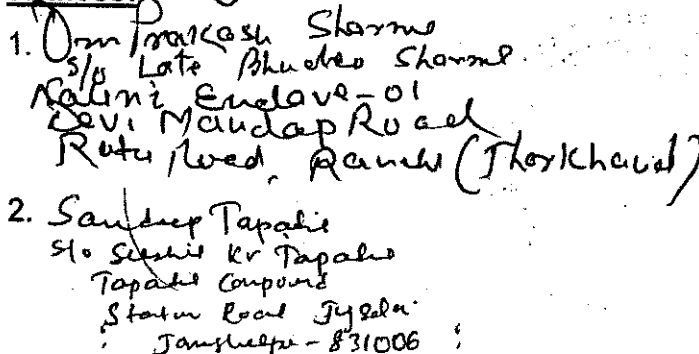 1. Om Prakash Sharma
S/o Late Bhudeo Sharma
Nalini Enclave-01
Devi Mandap Road
Ratu Road, Ranchi (Jharkhand)
2. Sandeep Tapadia
S/o Kr Tapadia
Tapadia Compound
Station Road
Jamshedpur - 831006